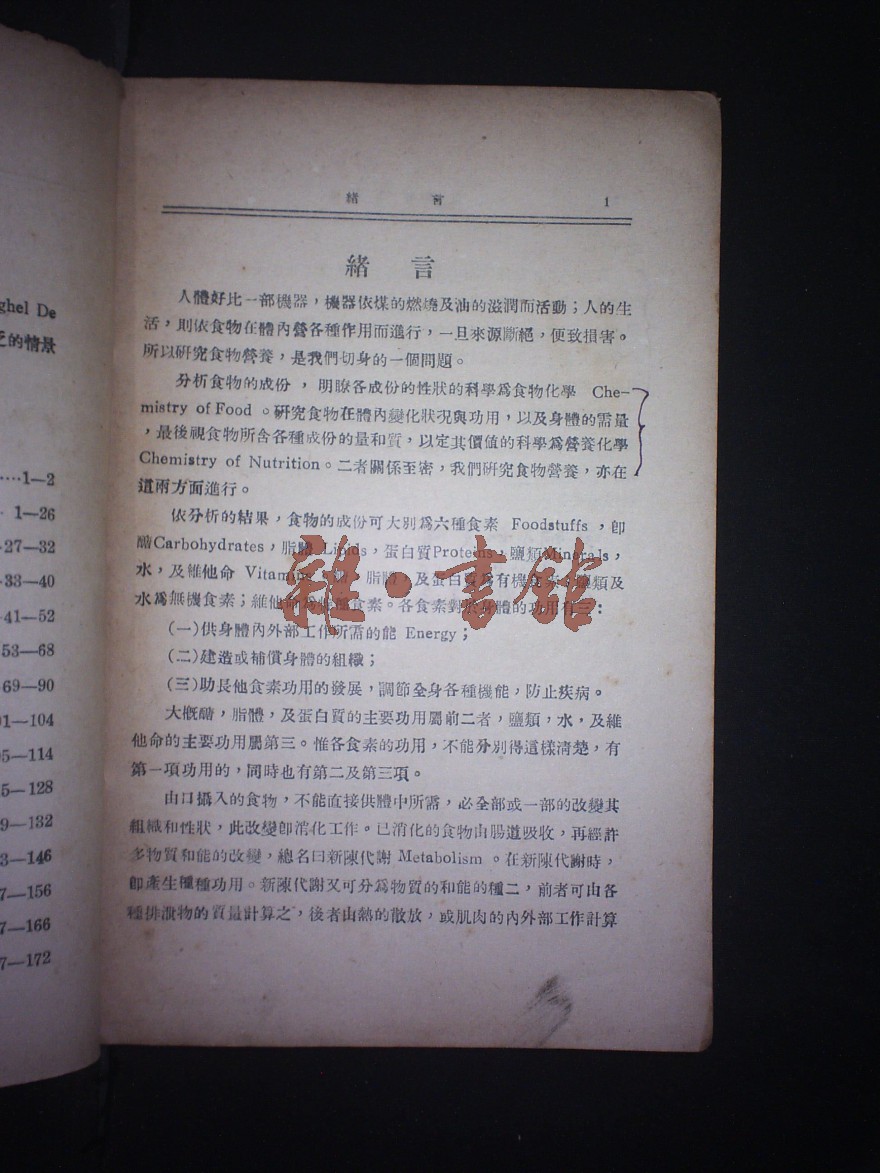 ghel De
乏的情景
1—2
1—26
27—32
33—40
41—52
53—68
69—90
1—104
5—114
5—128
9—132
3—146
7—156
7—166
7—172
緒 言 1
緒 言
人體好比一部機器，機器依煤的燃燒及油的滋潤而活動；人的生
活，則依食物在體內營各種作用而進行，一旦來源斷絕，便致損害。
所以研究食物營養，是我們切身的一個問題。
分析食物的成份，明瞭各成份的性狀的科學爲食物化學 Che-
mistry of Food 。研究食物在體內變化狀況與功用，以及身體的需量
，最後視食物所含各種成份的量和質，以定其價值的科學爲營養化學
Chemistry of Nutrition。二者關係至密，我們研究食物營養，亦在
這兩方面進行。
依分析的結果，食物的成份可大別爲六種食素 Foodstuffs ，卽
醣Carbohydrates，脂體 Lipids，蛋白質Proteins，鹽類Minerals，
水，及維他命 Vitamins 脂體，及蛋白質爲有機食素；鹽類及
水爲無機食素；維他命爲 食素。各食素對於身體的功用有三：
(一)供身體內外部工作所需的能 Energy；
(二)建造或補償身體的組織；
(三)助長他食素功用的發展，調節全身各種機能，防止疾病。
大概醣，脂體，及蛋白質的主要功用屬前二者，鹽類，水，及維
他命的主要功用屬第三。惟各食素的功用，不能分別得這樣清楚，有
第一項功用的，同時也有第二及第三項。
由口攝入的食物，不能直接供體中所需，必全部或一部的改變其
組織和性狀，此改變卽消化工作。已消化的食物由腸道吸收，再經許
多物質和能的改變，總名曰新陳代謝 Metabolism 。在新陳代謝時，
卽產生種種功用。新陳代謝又可分爲物質的和能的種二，前者可由各
種排洩物的質量計算之，後者由熱的散放，或肌肉的內外部工作計算
雜·書館